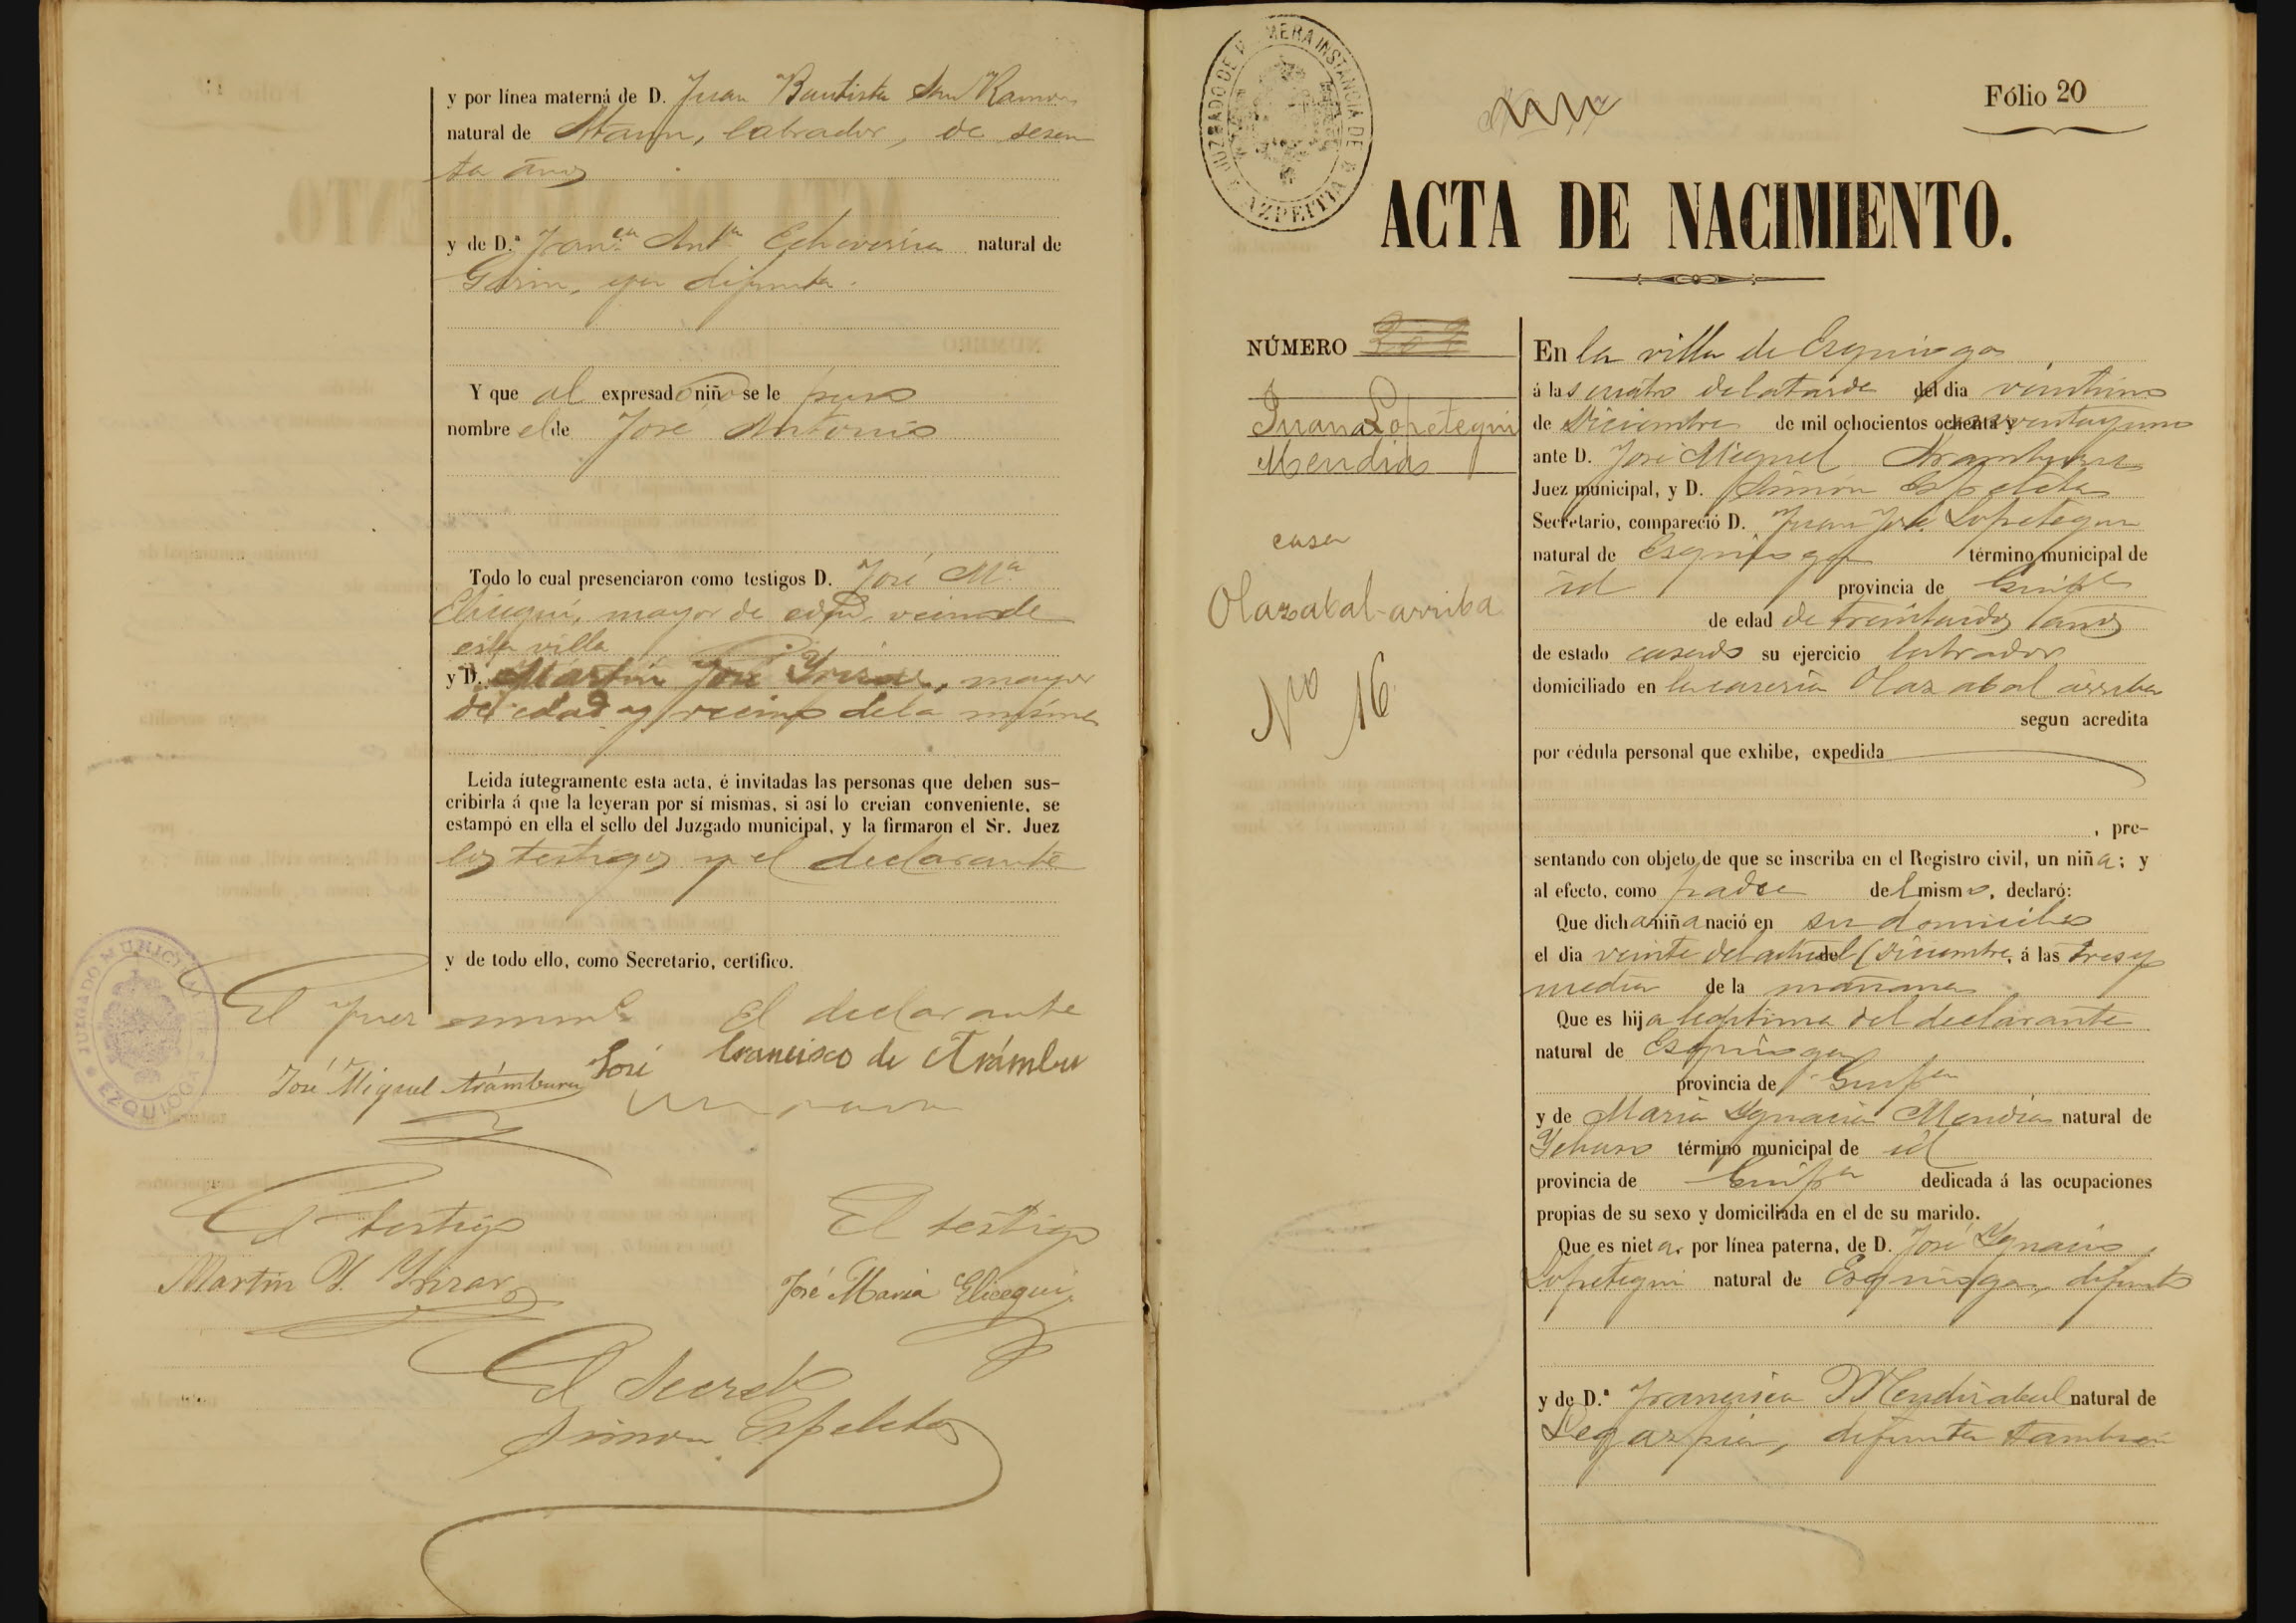 y por línea materna de D. Juan Bautista San Ramon
natural de Ataun, labrador, de sesen
ta años
y de D.ª Fran.ca Ant.ª Echeverria natural de
Gavira, ya difunta.
Y que al expresado niño se le puso
nombre el de José Antonio
Todo lo cual presenciaron como testigos D. José M.ª
Elicegui, mayor de edad, vecino de
esta villa
y D. Martin José Yrizar, mayor
de edad y vecino de la misma
Leida íntegramente esta acta, é invitadas las personas que deben sus-
cribirla á que la leyeran por sí mismas, si así lo creian conveniente, se
estampó en ella el sello del Juzgado municipal, y la firmaron el Sr. Juez
los testigos y el declarante
y de todo ello, como Secretario, certifico.
El Juez mun.l El declarante
José Miguel Arámburu José Francisco de Arámbu
JUZGADO MUNICIPAL DE EZQUIOGA
El testigo El testigo
Martin J. Yrizar José Maria Elicegui
El Secret.º
Simon Ezpeleta
JUZGADO DE PRIMERA INSTANCIA DE AZPEITIA
Fólio 20
ACTA DE NACIMIENTO.
NÚMERO
Juana Lopetegui
Mendia
casa
Olazabal-arriba
Nº 16
En la villa de Ezquioga
á las cuatro de la tarde del dia veintiuno
de Diciembre de mil ochocientos ochenta y noventa y uno
ante D. José Miguel Aramburu
Juez municipal, y D. Simón Ezpeleta
Secretario, compareció D. Juan José Lopetegui
natural de Ezquioga término municipal de
id provincia de Guip.ª
de edad de treintaidos años
de estado casado su ejercicio labrador
domiciliado en la casería Olazabal arriba
segun acredita
por cédula personal que exhibe, expedida
, pre-
sentando con objeto de que se inscriba en el Registro civil, un niña; y
al efecto, como padre del mismo, declaró:
Que dicha niña nació en su domicilio
el dia veinte del actual (Diciembre, á las tres y
media de la mañana
Que es hija legitima del declarante
natural de Ezquioga
provincia de Guip.ª
y de Maria Ygnacia Mendia natural de
Ychaso término municipal de id
provincia de Guip.ª dedicada á las ocupaciones
propias de su sexo y domiciliada en el de su marido.
Que es nieta, por línea paterna, de D. José Ygnacio
Lopetegui natural de Ezquioga, difunto
y de D.ª Francisca Mendizabal natural de
Legazpia, difunta tambien